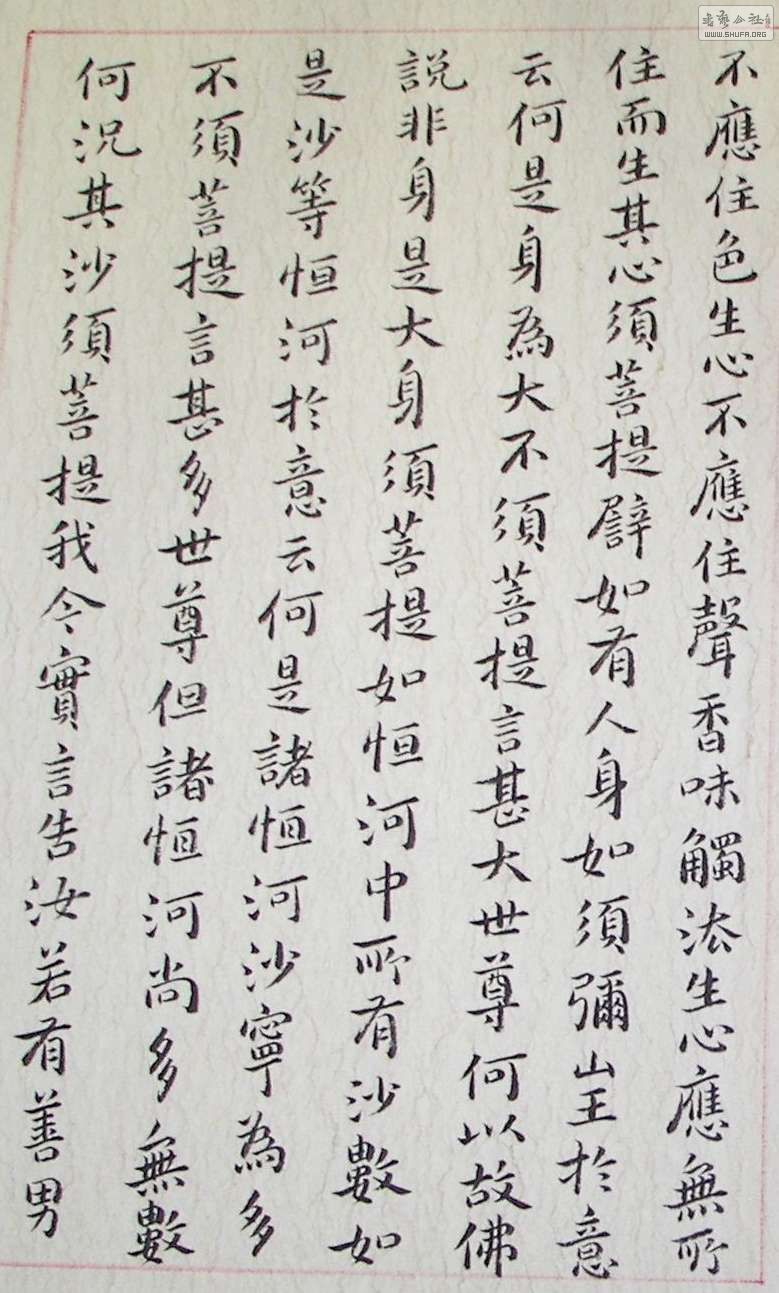 不應住色生心不應住聲香味觸法生心應無所
住而生其心須菩提譬如有人身如須彌山王於意
云何是身為大不須菩提言甚大世尊何以故佛
說非身是大身須菩提如恒河中所有沙數如
是沙等恒河於意云何是諸恒河沙寧為多
不須菩提言甚多世尊但諸恒河尚多無數
何況其沙須菩提我今實言告汝若有善男
書藝公社
WWW.SHUFA.ORG